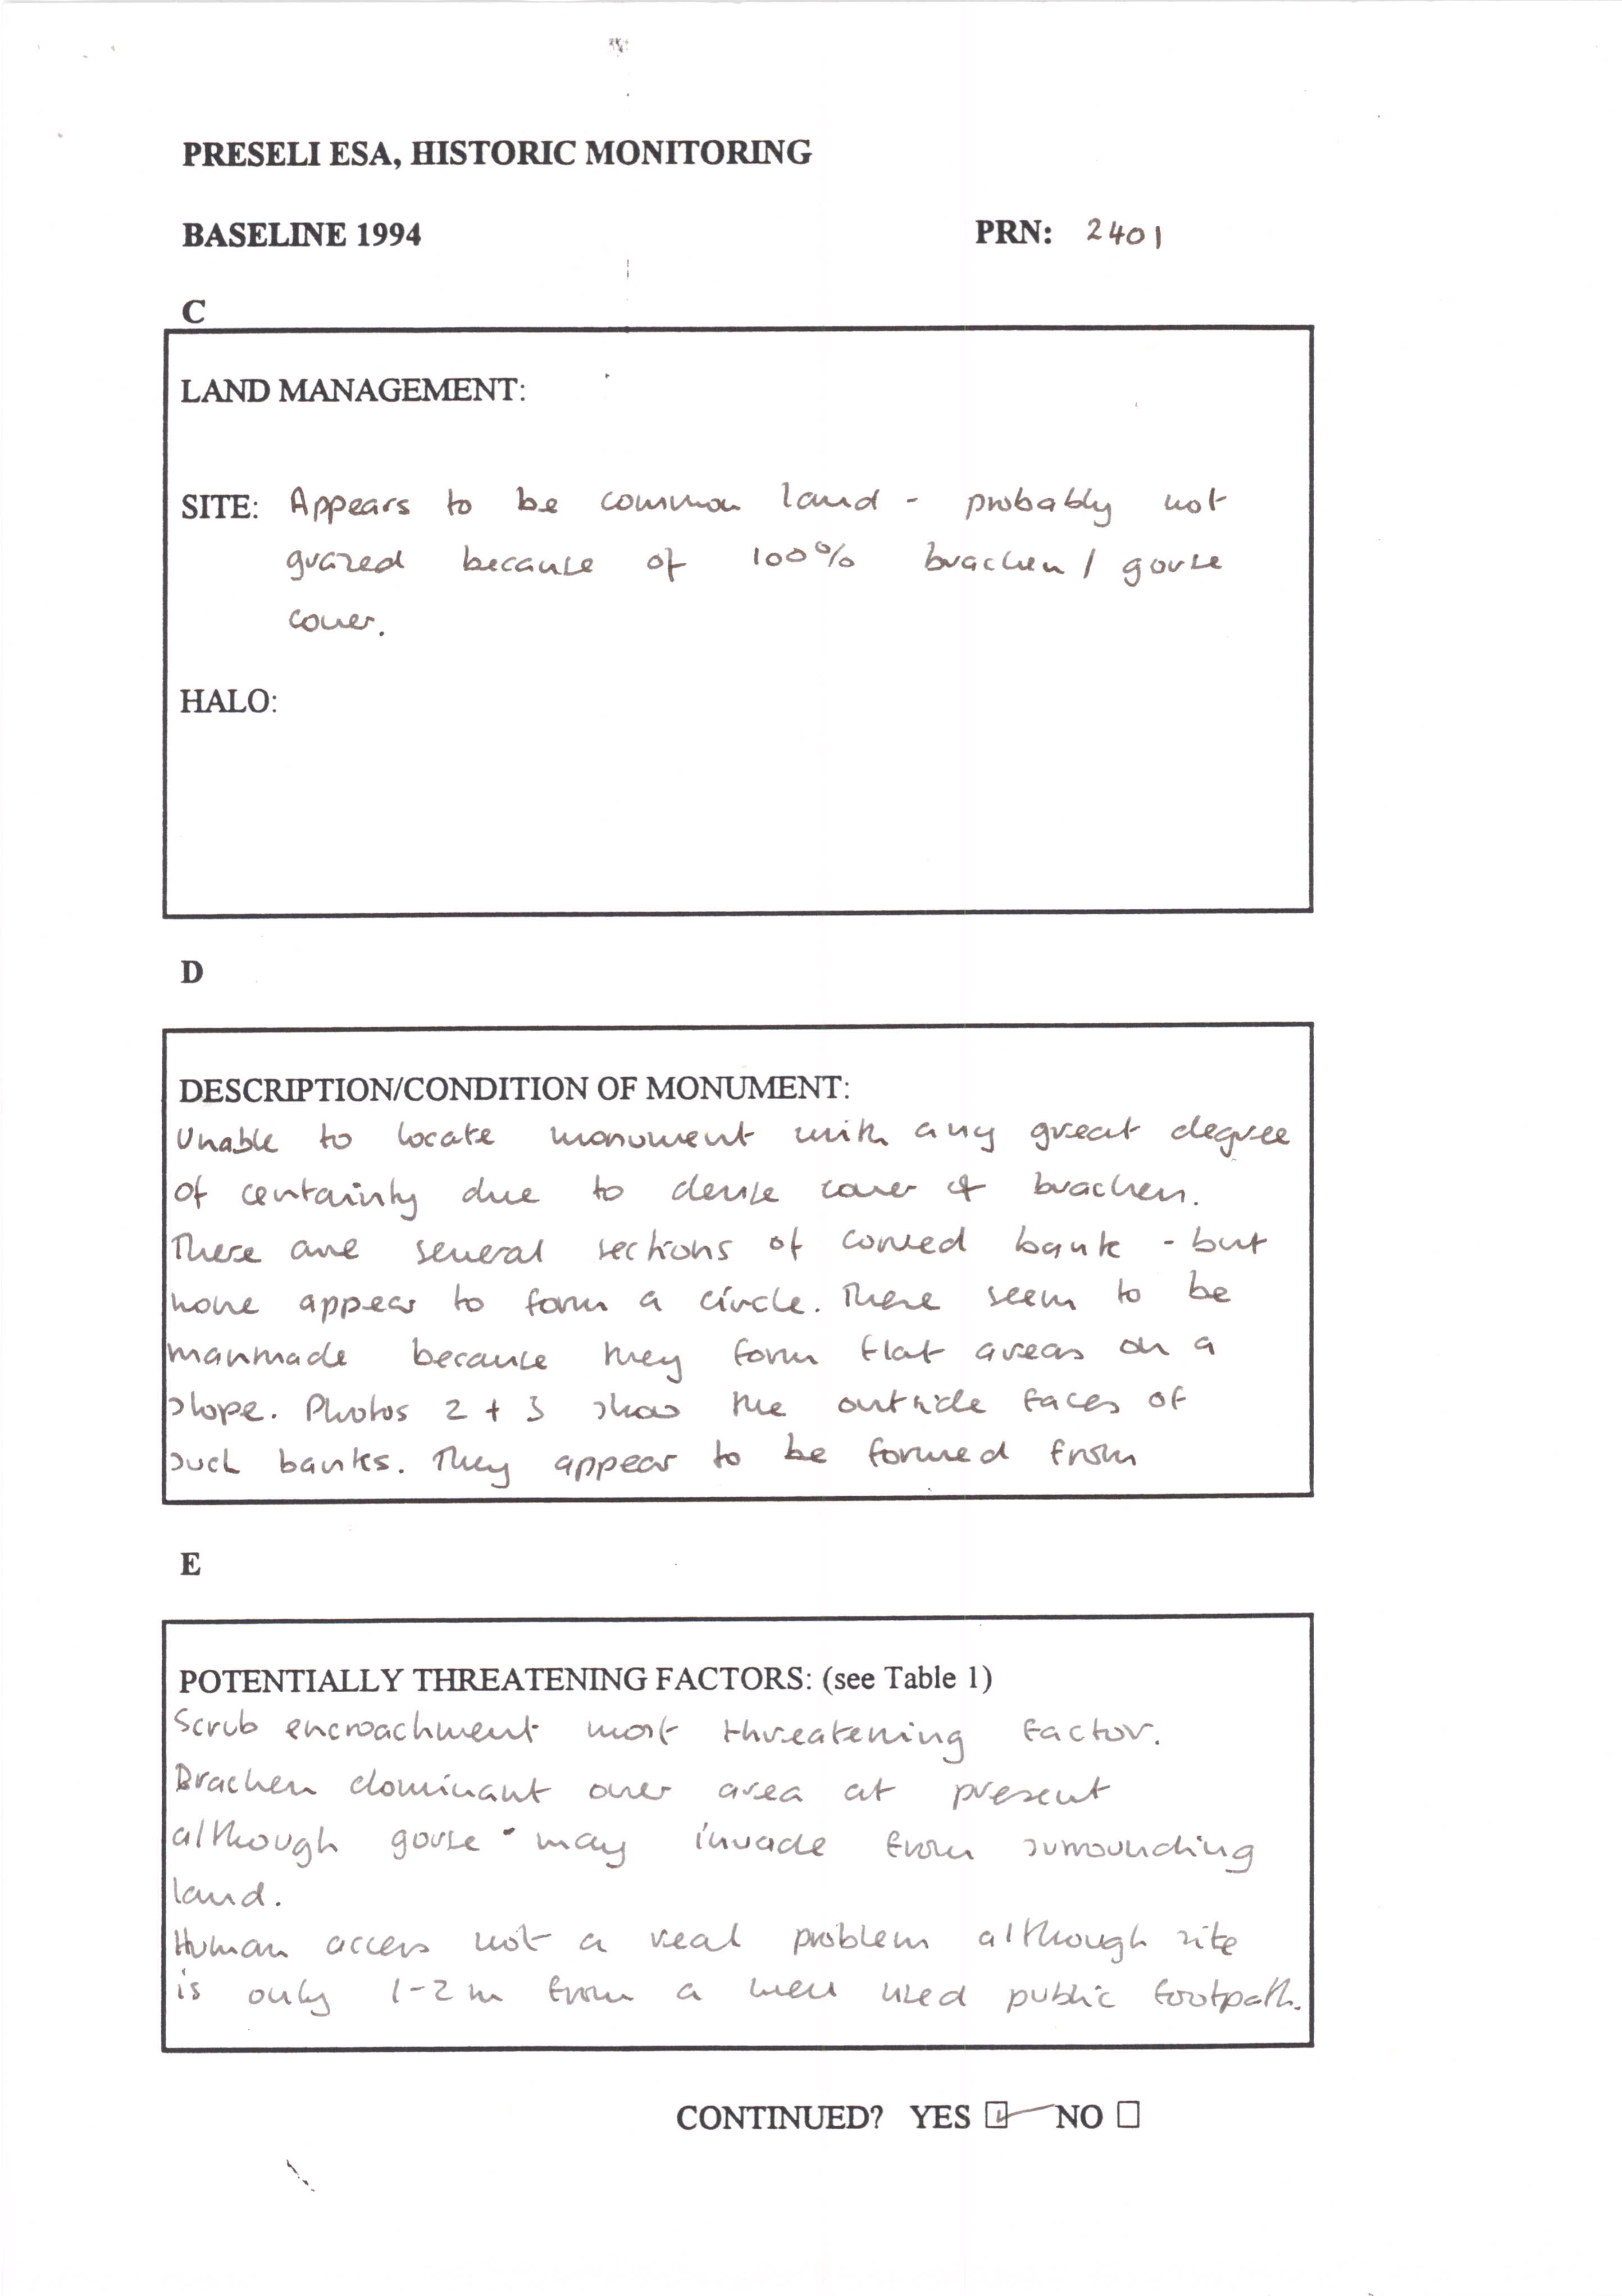 PRESELI ESA, HISTORIC MONITORING
BASELINE 1994 PRN: 2401
C
LAND MANAGEMENT:
SITE: Appears to be common land - probably not
grazed because of 100% bracken / gorse
cover.
HALO:
D
DESCRIPTION/CONDITION OF MONUMENT:
Unable to locate monument with any great degree
of certainty due to dense cover of bracken.
There are several sections of curved bank - but
none appear to form a circle. These seem to be
manmade because they form flat areas on a
slope. Photos 2 + 3 show the outside faces of
such banks. They appear to be formed from
E
POTENTIALLY THREATENING FACTORS: (see Table 1)
Scrub encroachment most threatening factor.
Bracken dominant over area at present
although gorse may invade from surrounding
land.
Human access not a real problem although site
is only 1-2m from a well used public footpath.
CONTINUED? YES ☑ NO ☐